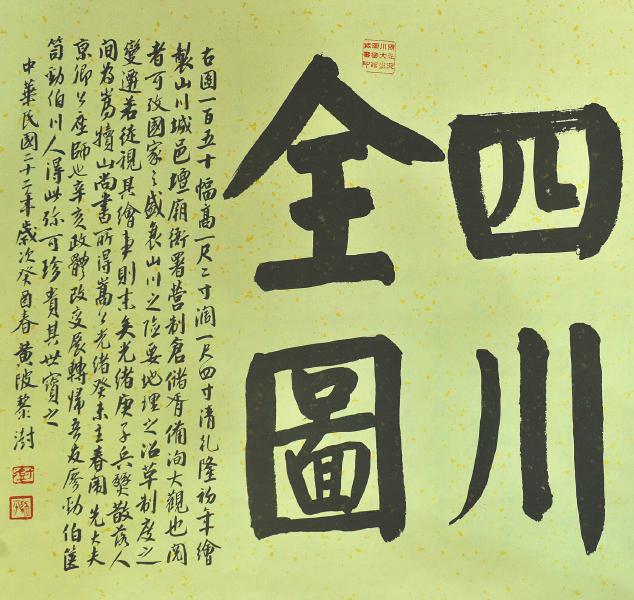 四川
全圖
古圖一百五十幅高一尺二寸濶一尺四寸清乾隆初年繪
製山川城邑壇廟衙署营制倉儲胥備洵大觀也閲
者可攷國家之盛衰山川之险要地理之沿革制度之
變遷若徒視其繪事則末矣光緒庚子兵燹散落人
间為嵩犢山尚書所得嵩公光緒癸未主春闈先大夫
京卿公座師也辛亥政體改变展轉歸吾友廖勁伯篋
笥勁伯川人得此弥可珍貴其世寶之
中華民國二十二年歲次癸酉春黄陂黎澍